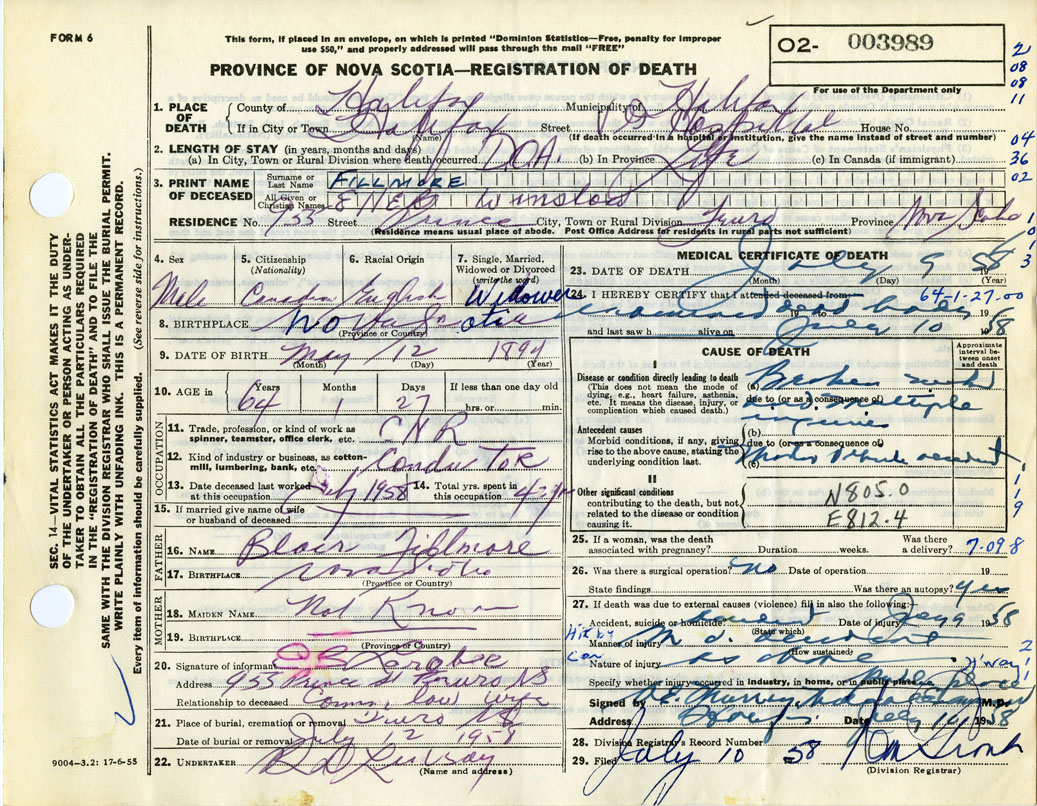 FORM 6
This form, if placed in an envelope, on which is printed "Dominion Statistics—Free, penalty for improper
use $50," and properly addressed will pass through the mail "FREE"
O2- 003989
For use of the Department only
2
08
08
11
04
36
02
1
0
1
3
PROVINCE OF NOVA SCOTIA—REGISTRATION OF DEATH
1. PLACE OF DEATH
County of Halifax Municipality of Halifax
If in City or Town Halifax Street Hospital House No.
(Name) (If death occurred in a hospital or institution, give the name instead of street and number)
2. LENGTH OF STAY (in years, months and days)
(a) In City, Town or Rural Division where death occurred D.O.A. (b) In Province Life (c) In Canada (if immigrant)
3. PRINT NAME OF DECEASED
Surname or Last Name FILLMORE
All Given or Christian Names Winslow
RESIDENCE No. 933 Street Prince City, Town or Rural Division Truro Province Nova Scotia
(Residence means usual place of abode. Post Office Address for residents in rural parts not sufficient)
4. Sex
Male
5. Citizenship
(Nationality)
Canadian
6. Racial Origin
English
7. Single, Married,
Widowed or Divorced
(write the word)
Widower
8. BIRTHPLACE Nova Scotia
(Province or Country)
9. DATE OF BIRTH May 12 1894
(Month) (Day) (Year)
10. AGE in
Years Months Days If less than one day old
64 1 27 hrs. or min.
OCCUPATION
11. Trade, profession, or kind of work as
spinner, teamster, office clerk, etc. CNR
12. Kind of industry or business, as cotton-
mill, lumbering, bank, etc. Conductor
13. Date deceased last worked
at this occupation July 1958
14. Total yrs. spent in
this occupation 42 yrs
15. If married give name of wife
or husband of deceased
FATHER
16. NAME Blair Fillmore
17. BIRTHPLACE Nova Scotia
(Province or Country)
MOTHER
18. MAIDEN NAME Not Known
19. BIRTHPLACE
(Province or Country)
20. Signature of informant
Address 933 Prince St Truro NS
Relationship to deceased Comm. law wife
21. Place of burial, cremation or removal Truro NS
Date of burial or removal July 12 1958
22. UNDERTAKER Lindsay
(Name and address)
MEDICAL CERTIFICATE OF DEATH
23. DATE OF DEATH July 9 1958
(Month) (Day) (Year)
24. I HEREBY CERTIFY that I attended deceased from:
64-1-27.00
examined dead body
19 to July 10 1958
and last saw h alive on
CAUSE OF DEATH
Approximate
interval be-
tween onset
and death
I
Disease or condition directly leading to death
(This does not mean the mode of
dying, e.g., heart failure, asthenia,
etc. It means the disease, injury, or
complication which caused death.)
(a) Broken neck
due to (or as a consequence of)
and multiple
injuries
Antecedent causes
Morbid conditions, if any, giving
rise to the above cause, stating the
underlying condition last.
(b)
due to (or as a consequence of)
(c) Motor vehicle accident
II
Other significant conditions
contributing to the death, but not
related to the disease or condition
causing it.
N805.0
E812.4
1
1
9
25. If a woman, was the death
associated with pregnancy? Duration weeks. Was there
a delivery? 7.098
26. Was there a surgical operation? no Date of operation 19
State findings Was there an autopsy? yes
27. If death was due to external causes (violence) fill in also the following:
Accident, suicide or homicide? accident Date of injury July 9 1958
(State which)
Hit by
Car
Manner of injury M.V. accident
(How sustained)
Nature of injury as above
2
H'way 1
Specify whether injury occurred in industry, in home, or in public place public place
Signed by M.D.
Address Date July 10 1958
28. Division Registrar's Record Number
29. Filed July 10 58
(Division Registrar)
SEC. 14—VITAL STATISTICS ACT MAKES IT THE DUTY
OF THE UNDERTAKER OR PERSON ACTING AS UNDER-
TAKER TO OBTAIN ALL THE PARTICULARS REQUIRED
IN THE "REGISTRATION OF DEATH" AND TO FILE THE
SAME WITH THE DIVISION REGISTRAR WHO SHALL ISSUE THE BURIAL PERMIT.
WRITE PLAINLY WITH UNFADING INK. THIS IS A PERMANENT RECORD.
Every item of information should be carefully supplied. (See reverse side for instructions.)
9004—3.2: 17-6-55